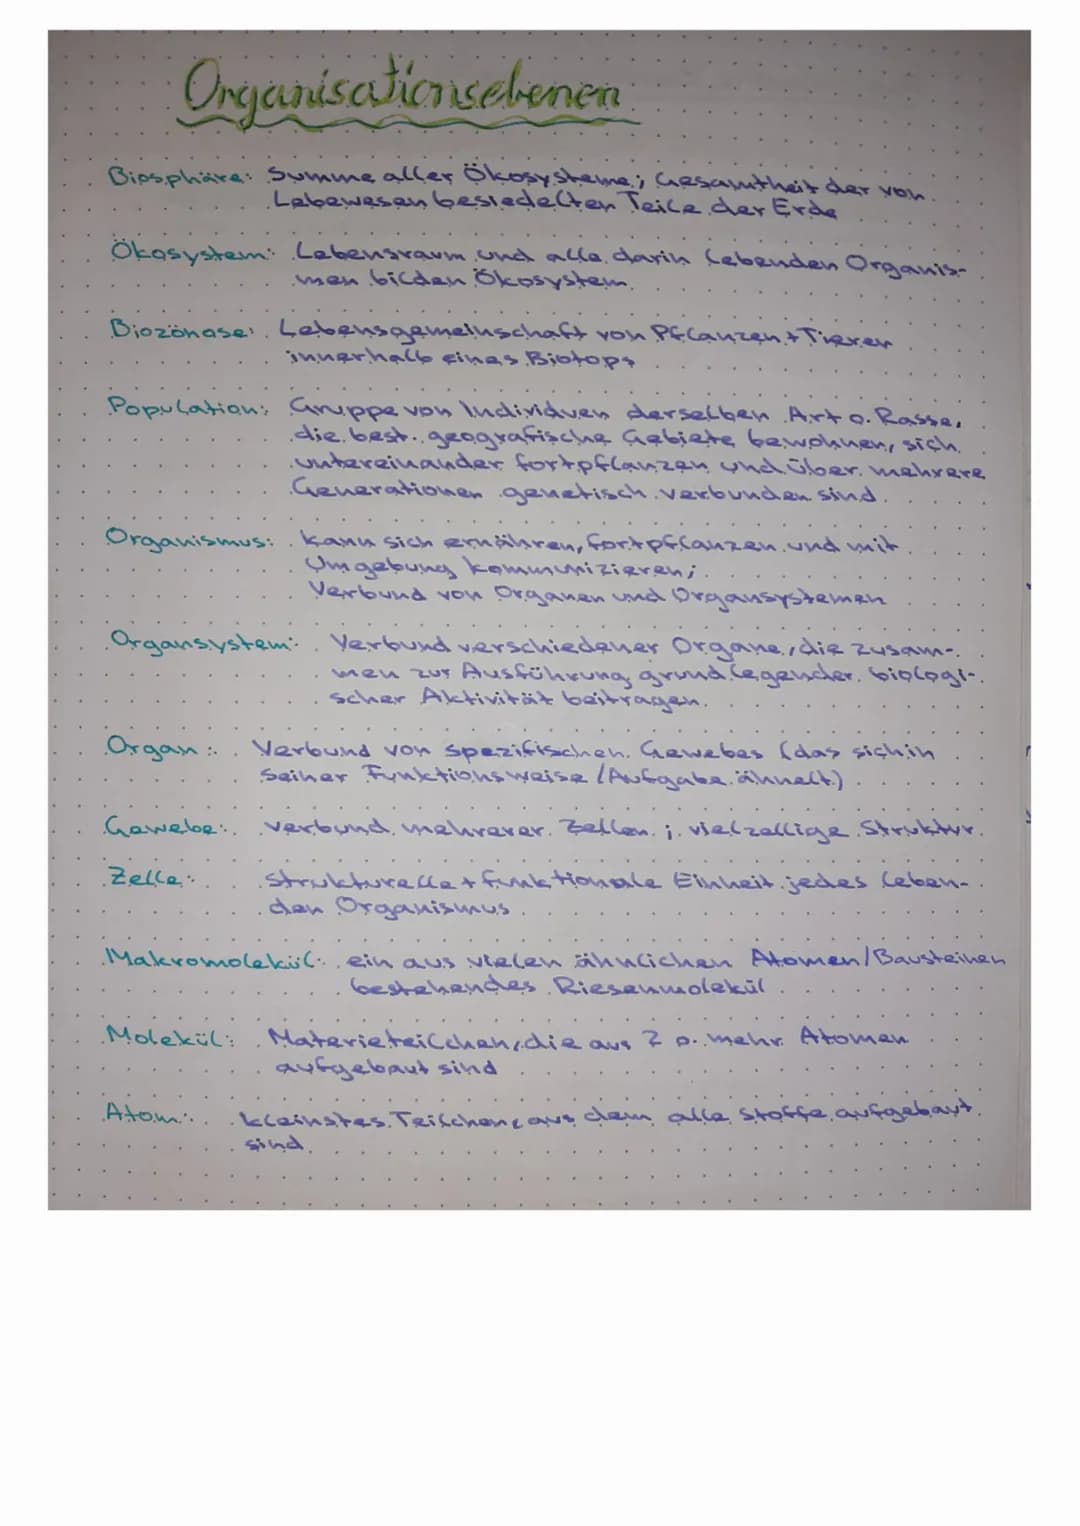 Organisationsebenen
Biosphäre: Summe aller Ökosysteme; Gesamtheit der von
Lebewesen besiedelten Teile der Erde
Ökosystem: Lebensraum und alle darin lebenden Organis-
men bilden Ökosystem
Biozönose: Lebensgemeinschaft von Pflanzen + Tieren
innerhalb eines Biotops
Population: Gruppe von Individuen derselben Art o. Rasse,
die best. geografische Gebiete bewohnen, sich
untereinander fortpflanzen und über mehrere
Generationen genetisch verbunden sind
Organismus: kann sich ernähren, fortpflanzen und mit
Umgebung kommunizieren;
Verbund von Organen und Organsystemen
Organsystem: Verbund verschiedener Organe, die zusam-
men zur Ausführung grundlegender biologi-
scher Aktivität beitragen.
Organ: Verbund von spezifischen Gewebes (das sich in
seiner Funktionsweise / Aufgabe ähnelt)
Gewebe: Verbund mehrerer Zellen; vielzellige Struktur
Zelle: strukturelle + funktionale Einheit jedes leben-
den Organismus
Makromolekül: ein aus vielen ähnlichen Atomen/Bausteinen
bestehendes Riesenmolekül
Molekül: Materieteilchen, die aus 2 o. mehr Atomen
aufgebaut sind
Atom: kleinstes Teilchen, aus dem alle Stoffe aufgebaut
sind